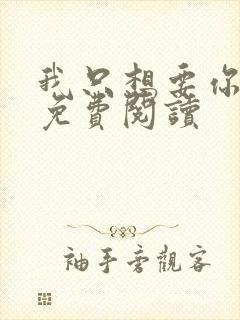 我只想要你
免費閱讀
袖手旁觀客